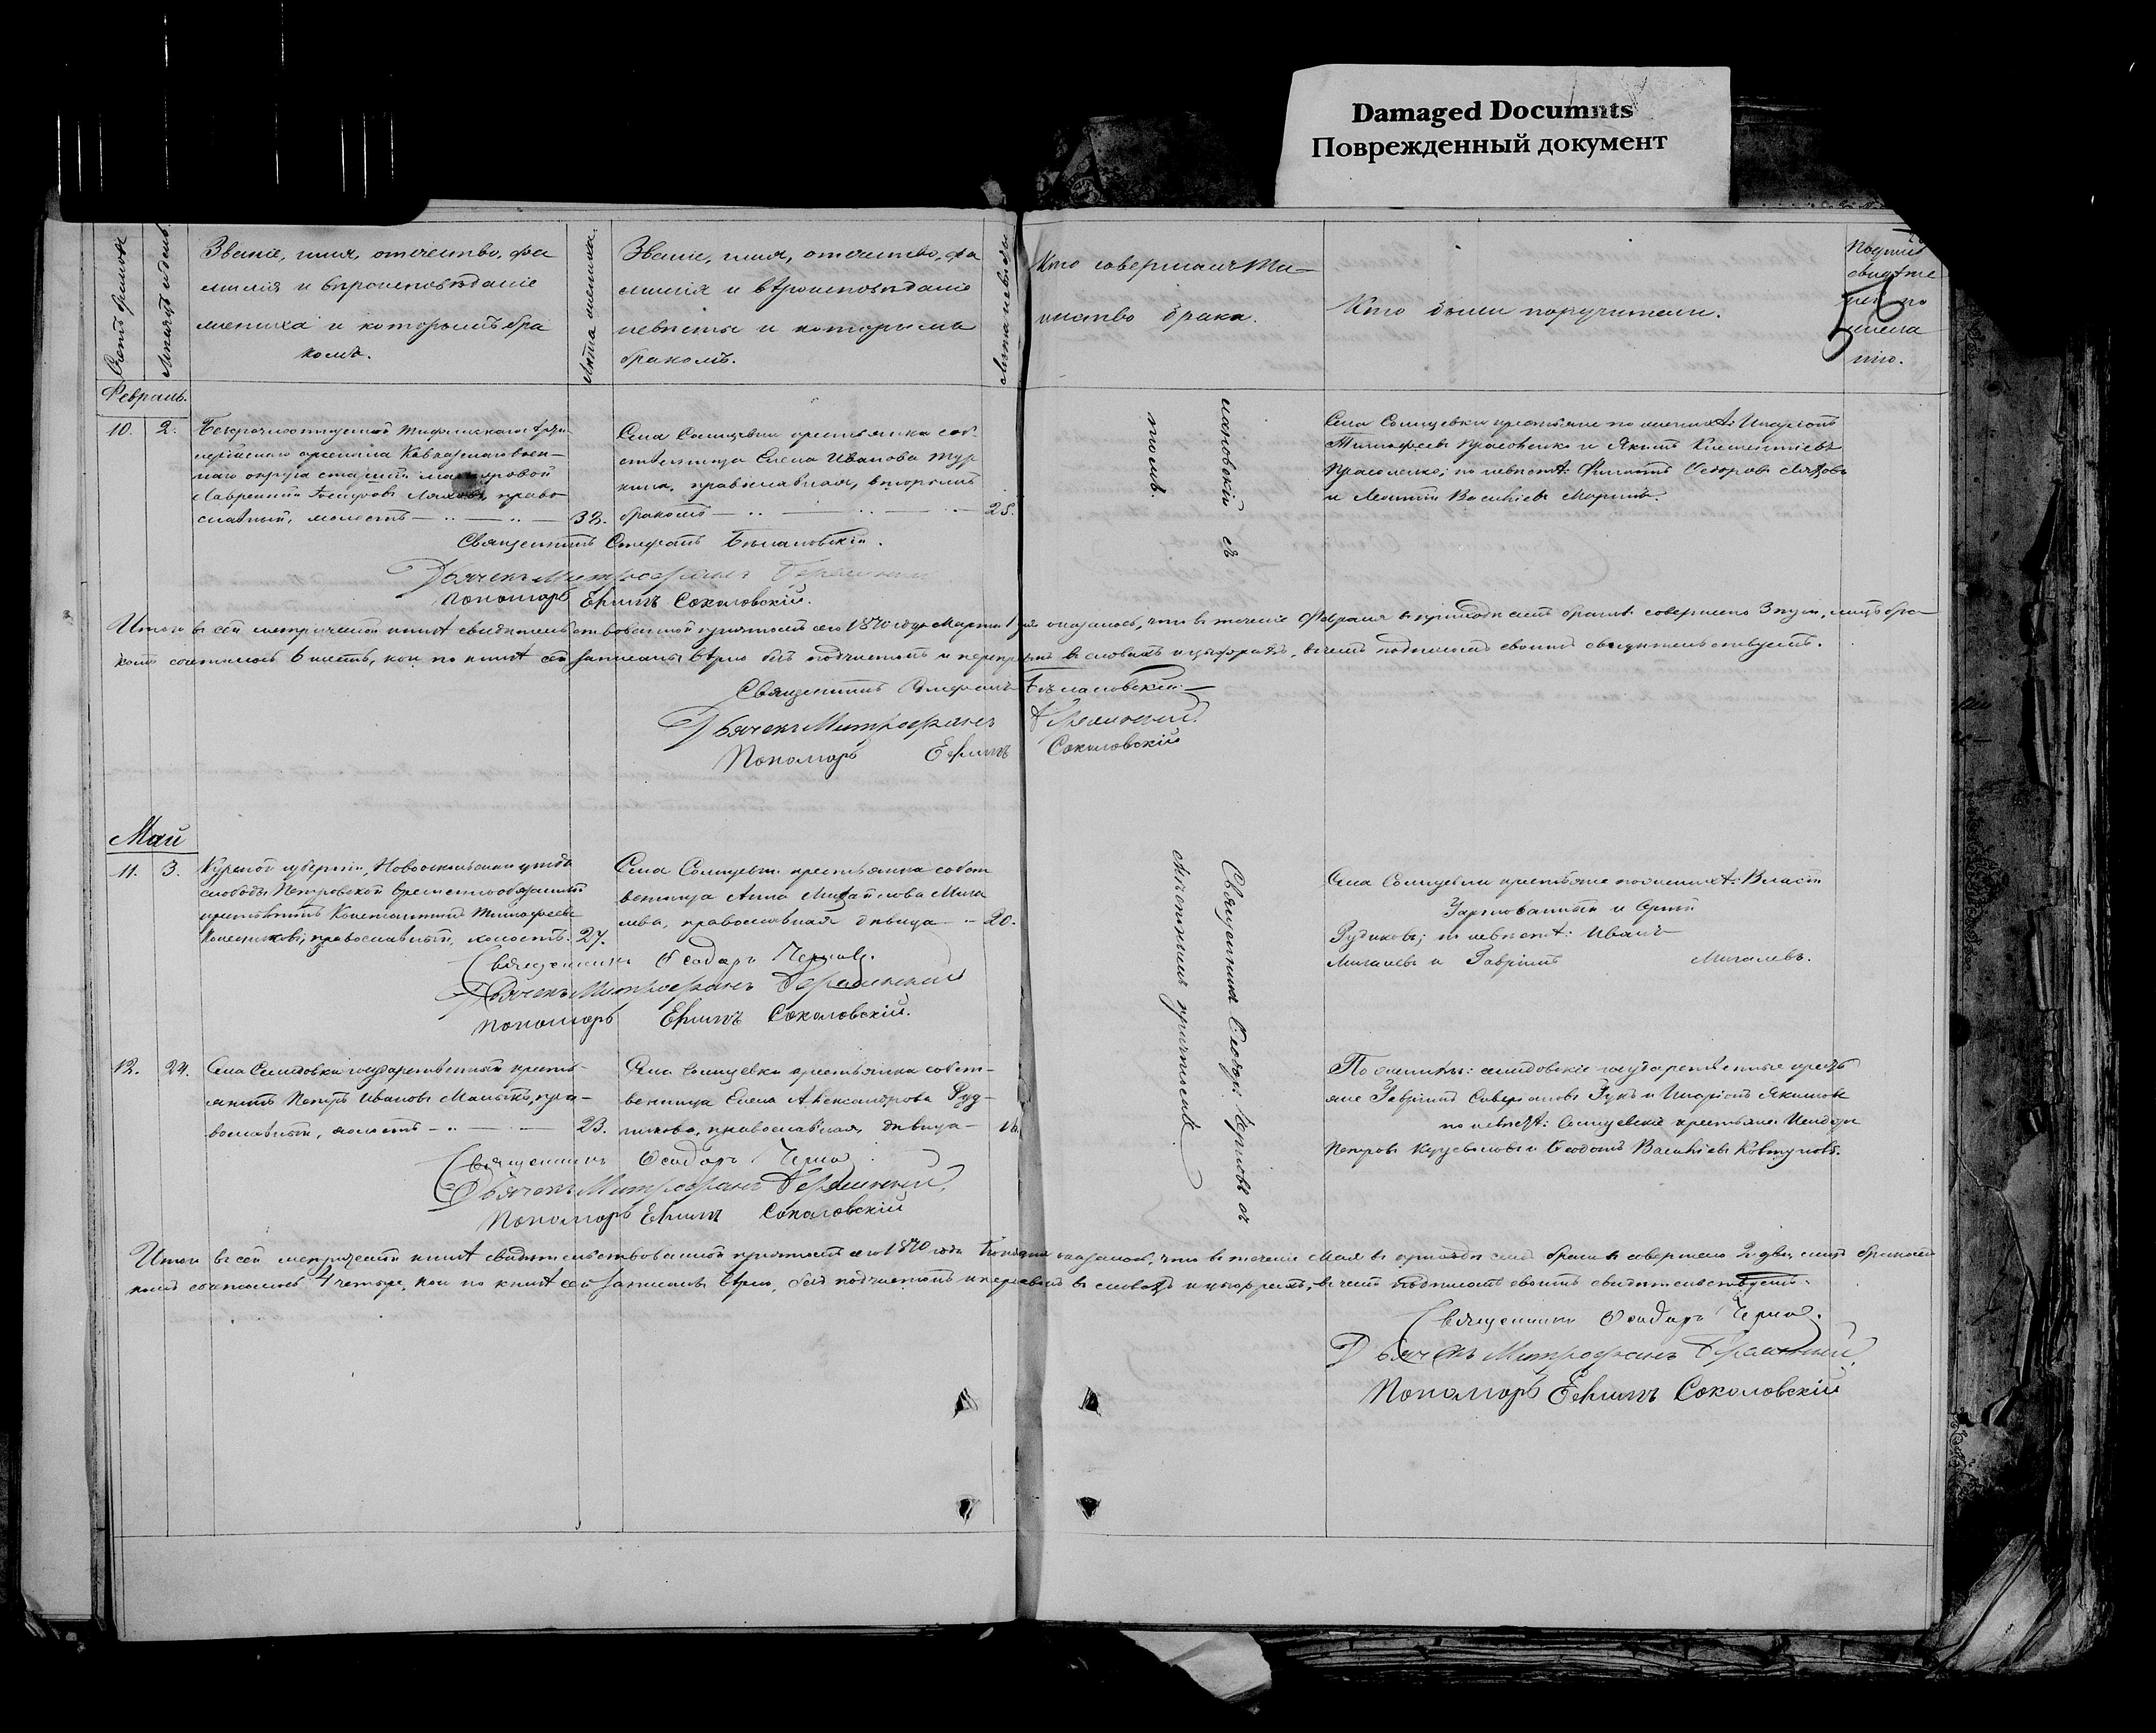 Damaged Documnts
Поврежденный документ
Счетъ браковъ
Мѣсяцъ и день
Званіе, имя, отчество, фа
милія и вѣроисповѣданіе
жениха и которымъ бра
комъ.
Лѣта жениха.
Званіе, имя, отчество, фа
милія и вѣроисповѣданіе
невѣсты и которымъ
бракомъ.
Лѣта невѣсты
Кто совершалъ Та-
инство брака.
Кто были поручители.
Подпись
свидѣте
лей по
жела
нію.
Февраль.
10. 2.
Безсрочноотпускной Тифлисскаго Арти
лерійскаго арсенала Кавказскаго воен-
наго округа старшій
Лаврентій право
славный, холостъ 38.
Села Солнцевки крестьянка соб-
ственница Елена Иванова Тур
кина, православная, вторымъ
бракомъ 25.
мановскій съ
томъ.
Села Солнцевки крестьяне по женихѣ: Иларіонъ
Тимофеевъ Красенко и Якимъ Климентіевъ
по невѣстѣ: Филиппъ Федоровъ
и Леонтій Васильевъ
Священникъ Бѣлановскій.
Дьячекъ Митрофанъ
Пономарь Ефимъ Соколовскій.
Итого въ сей метрической книгѣ свидѣтельствованной причтомъ сего 1870 года Марта 1 дня оказалось, что въ теченіе Февраля въ приходѣ семъ браковъ совершено 3 три, лицъ бра
комъ сочеталось 6 шесть, кои по книгѣ сей записаны вѣрно безъ подчистокъ и переправокъ въ словахъ и цыфрахъ, въ чемъ подписомъ своимъ свидѣтельствуемъ.
Священникъ Бѣлановскій
Дьячекъ Митрофанъ
Пономарь Ефимъ Соколовскій
Май
11. 3.
Курской губерніи, Новооскольскаго уѣзда
слободы Петровской временнообязанный
крестьянинъ Константинъ Тимофеевъ
Колесниковъ, православный, холостъ. 27.
Села Солнцевки крестьянка собст
венница Анна Михайлова Мига
лева, православная дѣвица 20.
Священникъ Ѳеодоръ Черновъ съ
мѣстнымъ причтомъ.
Села Солнцевки крестьяне по женихѣ: Власій
и Сергій
Рудиковъ; по невѣстѣ: Иванъ
Мигалевъ и Гавріилъ Мигалевъ.
Священникъ Ѳеодоръ Черновъ.
Дьячекъ Митрофанъ
Пономарь Ефимъ Соколовскій.
12. 24.
Села Селидовки государственный кресть-
янинъ Петръ Ивановъ пра-
вославный, холостъ 23.
Села Солнцевки крестьянка собст-
венница Елена Александрова Руд-
никова, православная, дѣвица 18.
По женихѣ: селидовскіе государственные кресть
яне Гавріилъ Зукъ и Иларіонъ Якимовъ
по невѣстѣ: Солнцевскіе крестьяне Исидоръ
Петровъ и Ѳеодотъ Васильевъ Ковтуновъ.
Священникъ Ѳеодоръ Черно
Дьячекъ Митрофанъ
Пономарь Ефимъ Соколовскій
Итого въ сей метрической книгѣ свидѣтельствованной причтомъ сего 1870 года оказалось, что въ теченіе Мая въ приходѣ семъ браковъ совершено 2 два, лицъ
сочеталось 4 четыре, кои по книгѣ сей записаны вѣрно, безъ подчистокъ и переправокъ въ словахъ и цыфрахъ, въ чемъ подписомъ своимъ свидѣтельствуемъ.
Священникъ Ѳеодоръ Черно
Дьячекъ Митрофанъ
Пономарь Ефимъ Соколовскій